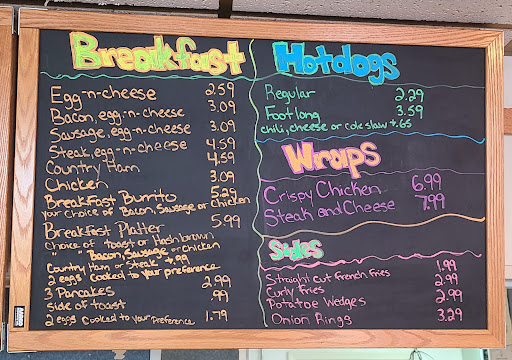 Breakfast
Egg-n-cheese 2.59
Bacon, egg-n-cheese 3.09
Sausage, egg-n-cheese 3.09
Steak, egg-n-cheese 4.59
Country Ham 4.59
Chicken 3.09
Breakfast Burrito 5.29
your choice of Bacon, Sausage or chicken
Breakfast Platter 5.99
Choice of toast or Hashbrown
" " Bacon, Sausage or Chicken
Country Ham or Steak 4.99
2 eggs Cooked to your preference
3 Pancakes 2.99
Side of toast .99
2 eggs Cooked to your Preference 1.79
Hotdogs
Regular 2.29
Footlong 3.59
chili, cheese or coleslaw +.65
Wraps
Crispy Chicken 6.99
Steak and Cheese 7.99
Sides
Straight Cut French Fries 1.99
Curly Fries 2.99
Potatoe Wedges 2.99
Onion Rings 3.29